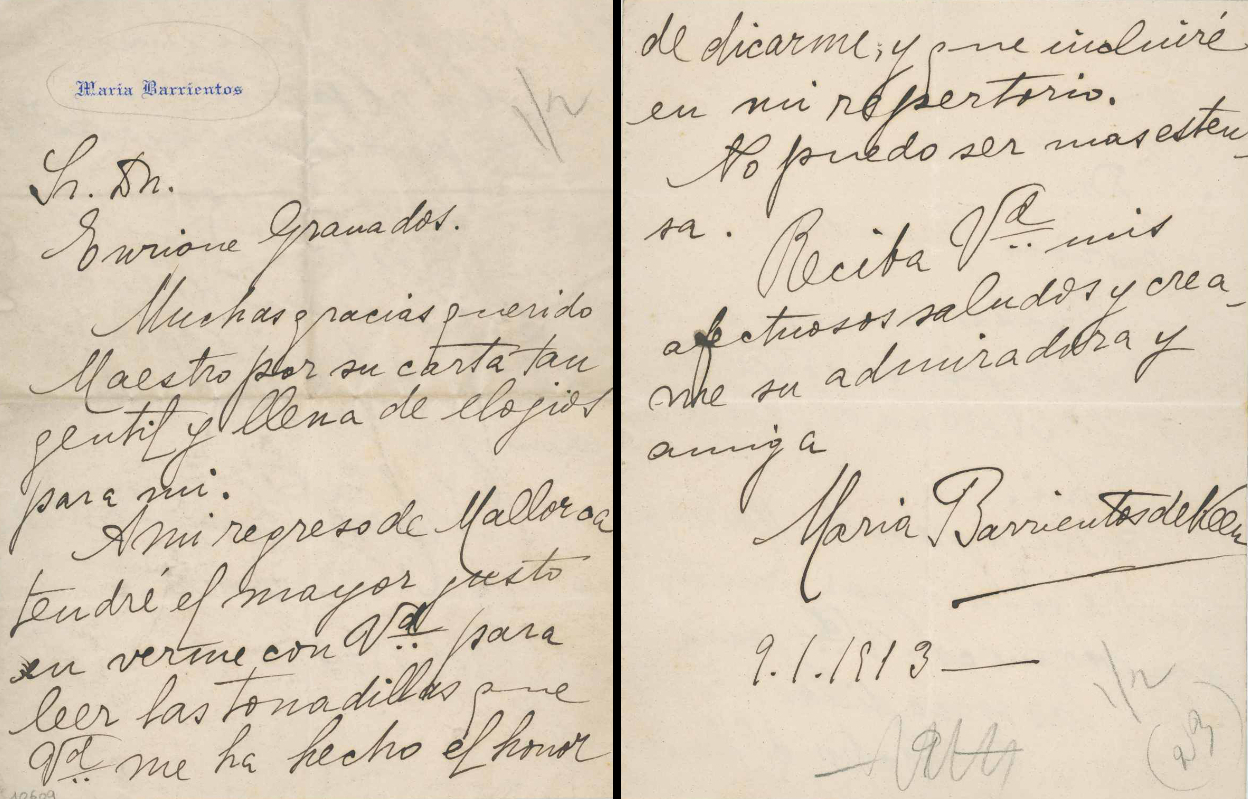 Maria Barrientos
1/2
Sr. Dn.
Enrique Granados.
Muchas gracias querido
Maestro por su carta tan
gentil y llena de elogios
para mi.
A mi regreso de Mallorca
tendré el mayor gusto
en verme con Vd. para
leer las tonadillas que
Vd. me ha hecho el honor
10609
de dicarme, y que incluiré
en mi repertorio.
No puedo ser mas esten-
sa.
Reciba Vd. mis
afectuosos saludos y crea-
me su admiradora y
amiga
Maria Barrientos de Keen
9.1.1913—
1/2